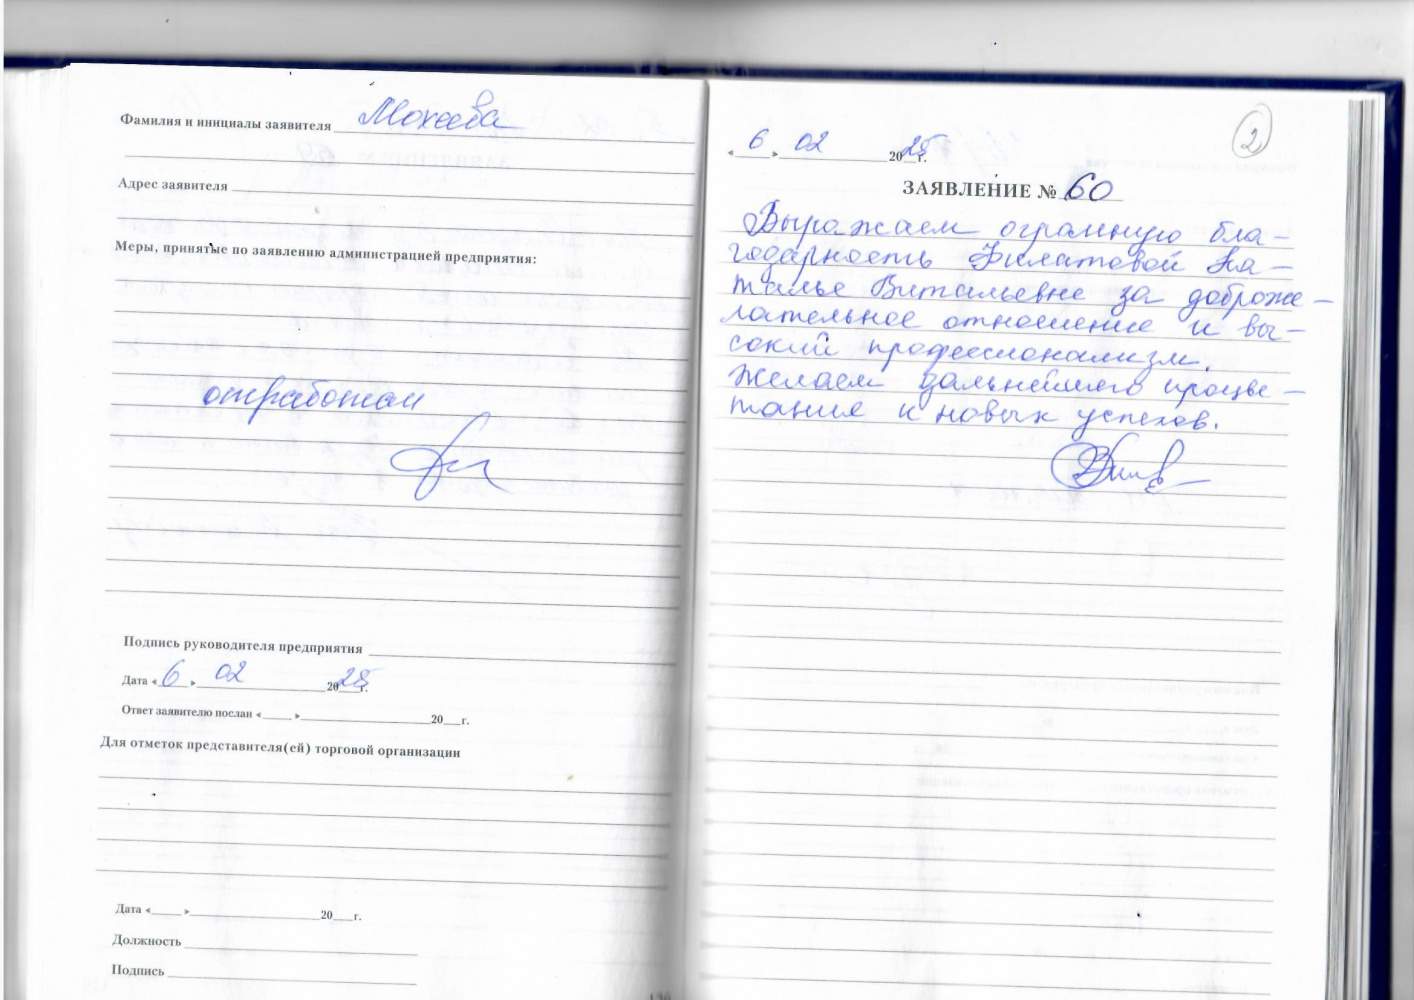 Фамилия и инициалы заявителя Мохеева
Адрес заявителя
Меры, принятые по заявлению администрацией предприятия:
отработан
Подпись руководителя предприятия
Дата « 6 » 02 2025 г.
Ответ заявителю послан «____» ____ 20__ г.
Для отметок представителя(ей) торговой организации
Дата «____» ____ 20__ г.
Должность
Подпись
2
« 6 » 02 2025 г.
ЗАЯВЛЕНИЕ № 60
Выражаем огромную бла-
годарность Филатовой На-
талье Витальевне за доброже-
лательное отношение и вы-
сокий профессионализм.
Желаем дальнейшего процве-
тания и новых успехов.